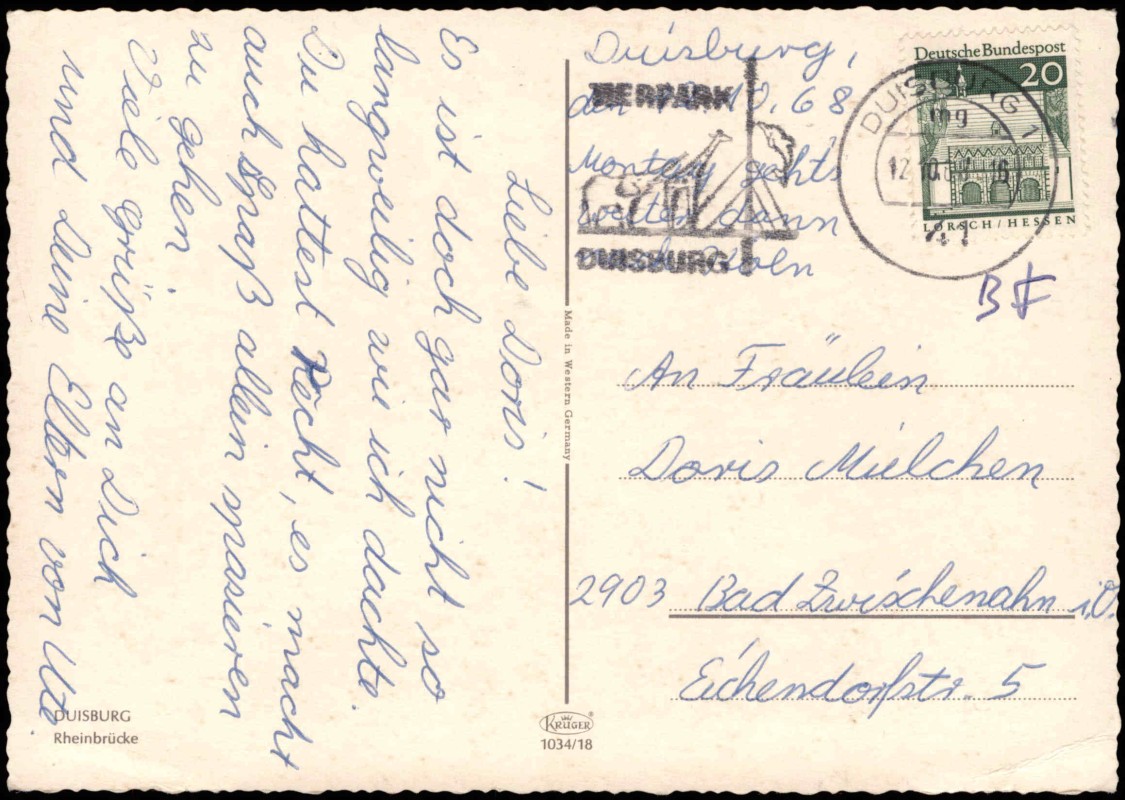 Liebe Doris!
Es ist doch gar nicht so
langweilig wie ich dachte.
Du hattest Recht, es macht
auch Spaß allein spasieren
zu gehen.
Viele Grüße an Dich
und Deine Eltern von Ute.
Duisburg,
den 10.68
Montag gehts
weiter dann
Köln
TIERPARK
DUISBURG
DUISBURG 1
mg
12.10.68-16
41
Deutsche Bundespost
20
LORSCH/HESSEN
An Fräulein
Doris Mielchen
2903 Bad Zwischenahn i.O.
Eichendorfstr. 5
Made in Western Germany
DUISBURG
Rheinbrücke
KRÜGER®
1034/18